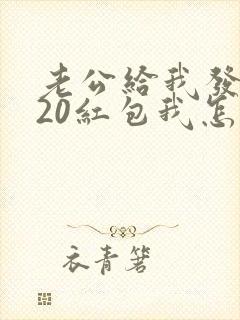 老公給我發
20紅包我怎
衣青箬